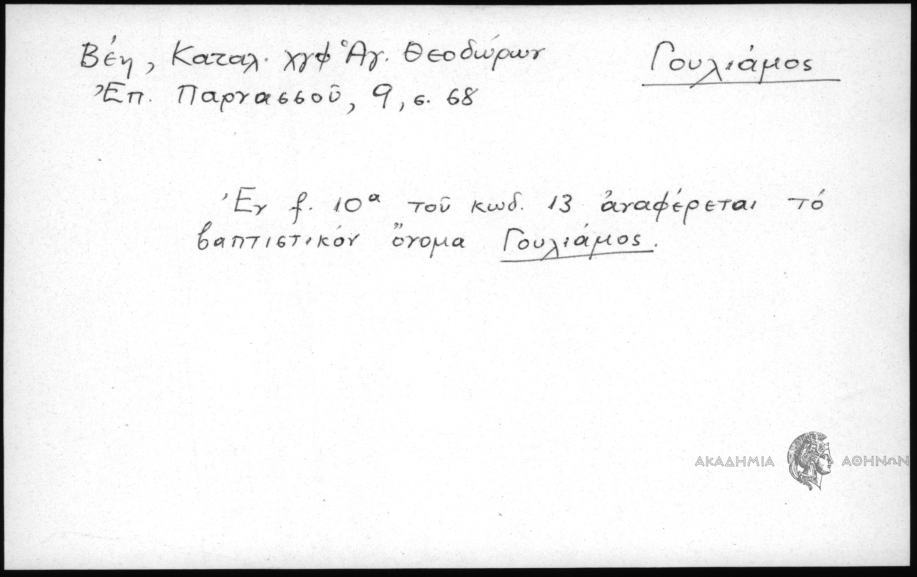 Βέη, Καταλ. χγφ Ἁγ. Θεοδώρων
Γουλιάμος
Ἐπ. Παρνασσοῦ, 9, σ. 68
Ἐν f. 10α τοῦ κωδ. 13 ἀναφέρεται τό
βαπτιστικόν ὄνομα Γουλιάμος.
ΑΚΑΔΗΜΙΑ ΑΘΗΝΩΝ